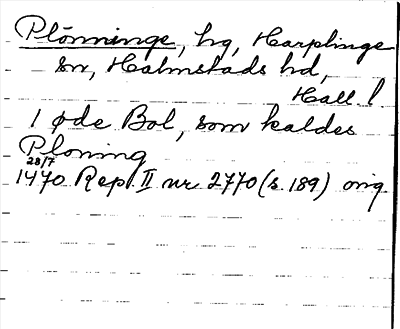 Plönninge, hg, Harplinge
sn, Halmstads hd,
Hall. l.
1 øde Bol, som kaldes
Ploning
28/7
1470 Rep. II nr 2770 (s. 189) orig.